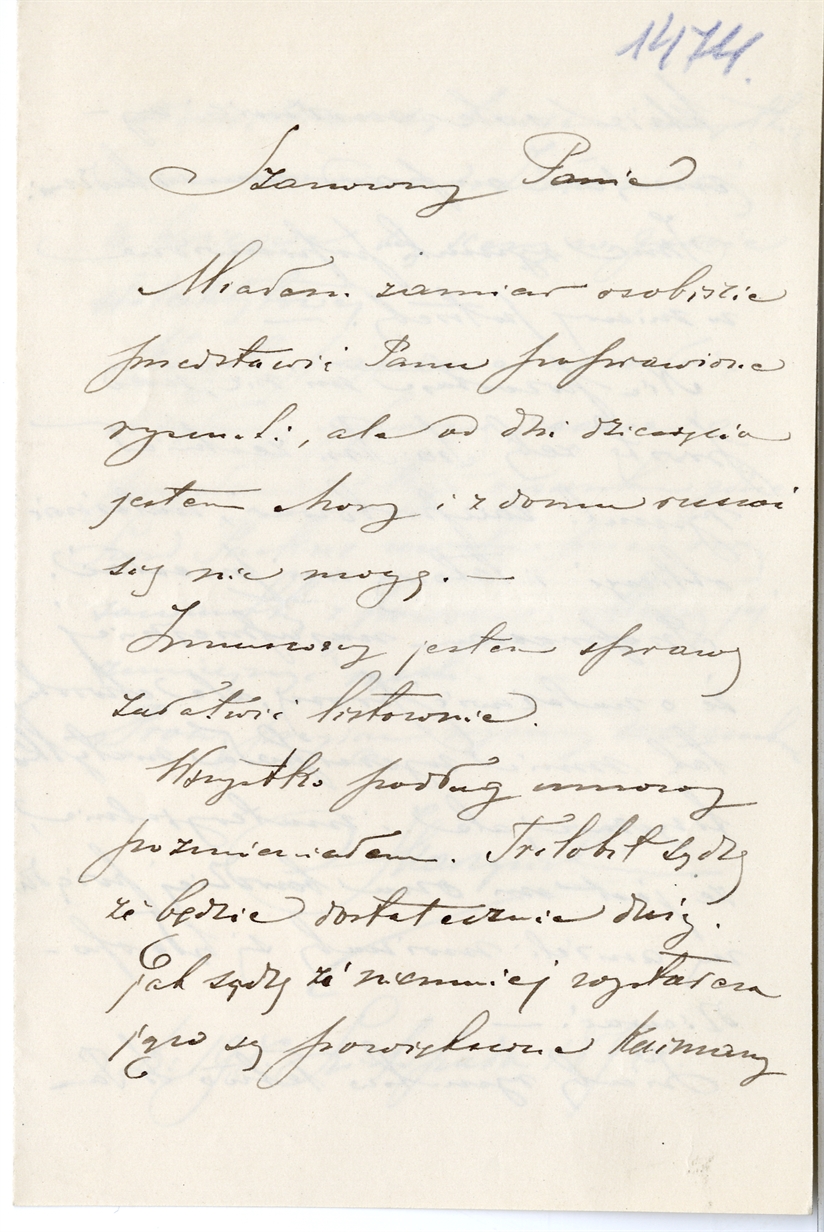 1474.
Szanowny Panie
Miałem zamiar osobiście
przedstawić Panu poprawione
rysunki, ale od dni dziesięciu
jestem chory i z domu ruszać
się nie mogę. —
Zmuszony jestem sprawę
załatwić listownie.
Wszystko podług umowy
pozmieniałem. Trilobit sądzę
że będzie dostatecznie duży.
Jak sądzę że niemniej wystarcza
są powiększone Kaimany